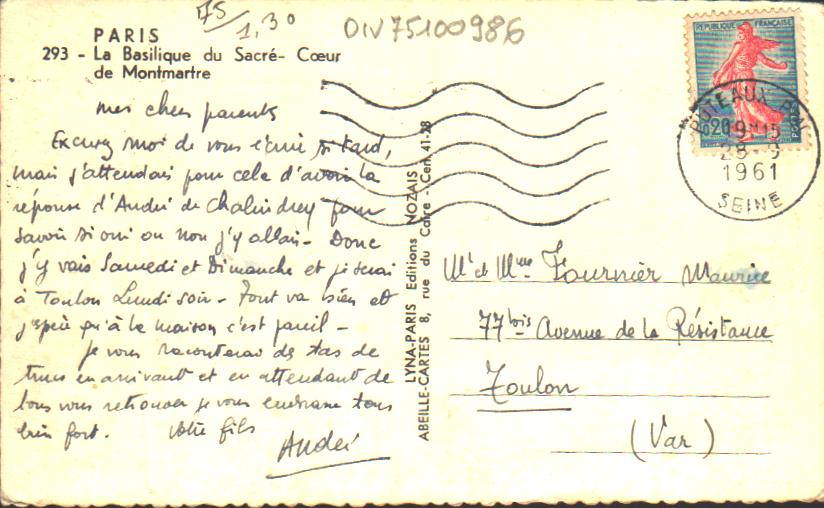 75/1,30
DIV75100986
PARIS
293 - La Basilique du Sacré- Cœur
de Montmartre
mes chers parents
Excusez moi de vous écrire si tard,
mais j'attendais pour cela d'avoir la
réponse d'André de Chalindrey pour
savoir si oui ou non j'y allais - Donc
j'y vais Samedi et Dimanche et je serai
à Toulon Lundi soir - Tout va bien et
j'espère qu'à la maison c'est pareil -
je vous raconterai des tas de
trucs en arrivant et en attendant de
tous vous retrouver je vous embrasse tous
bien fort. Votre fils
André
LYNA-PARIS Editions NOZAIS
ABEILLE-CARTES 8, rue du Caire - Cen. 41-28
REPUBLIQUE FRANÇAISE
0,20
POSTES
PUTEAUX P.PAL
19H15
28-9
1961
SEINE
Mr et Mme Fournier Maurice
77bis Avenue de la Résistance
Toulon
(Var)